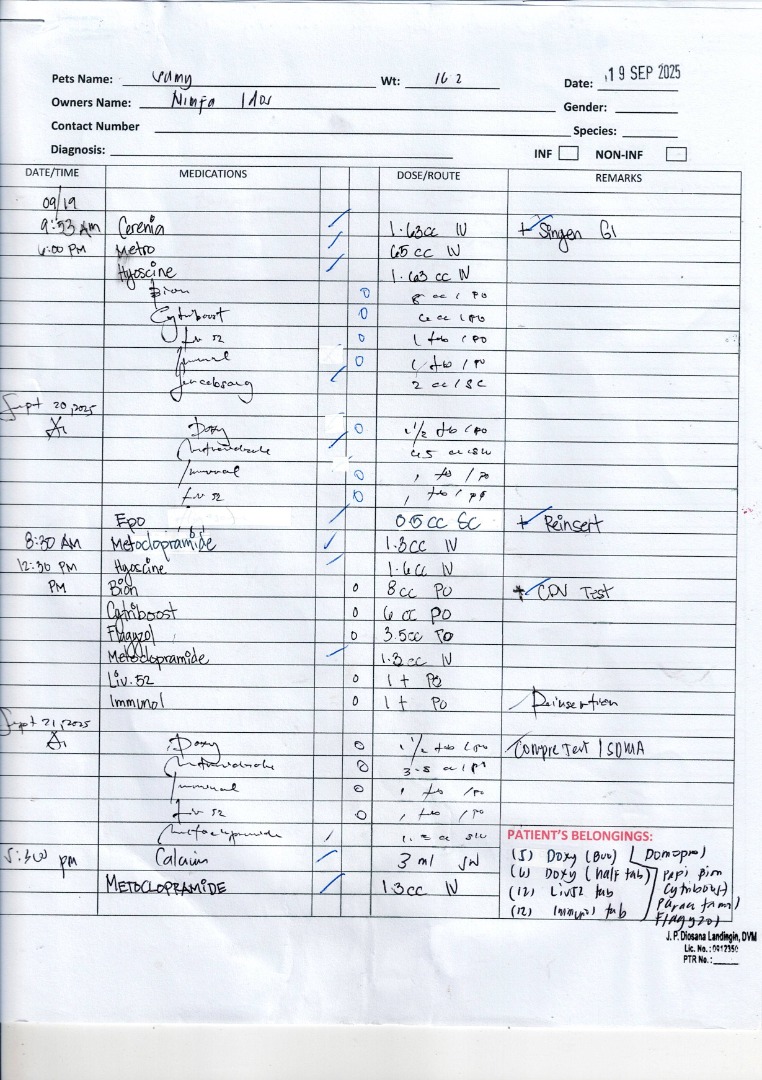 Pets Name: Wt: 16.2 Date: 19 SEP 2025
Owners Name: Ninja Gender:
Contact Number Species:
Diagnosis: INF NON-INF
DATE/TIME MEDICATIONS DOSE/ROUTE REMARKS
09/19
9:53 AM Cerenia 1.63cc IV + Singen GI
6:00 PM Metro 65cc IV
Hyoscine 1.63 cc IV
Bion 8 cc / PO
Cytriboost 6 cc / PO
Liv 52 1 tab / PO
Immunol 1 tab / PO
2 cc / SC
Sept 20, 2025
Doxy 1 1/2 tab / PO
Metronidazole 65 cc
Immunol 1 tab / PO
Liv 52 1 tab / PO
Epo 0.5cc SC + Reinsert
8:30 AM Metoclopramide 1.3cc IV
12:30 PM Hyoscine 1.6cc IV
PM Bion 8cc PO CDV Test
Cytriboost 6 cc PO
Flagyzol 3.5cc PO
Metoclopramide 1.3cc IV
Liv.52 1 t PO
Immunol 1 t PO Reinsertion
Sept 21, 2025
Doxy 1 1/2 tab / PO Compre Test / SDMA
Metronidazole 3.5 cc / PO
Immunol 1 tab / PO
Liv 52 1 tab / PO
Metoclopramide 1.3 cc
PATIENT'S BELONGINGS:
5:30 pm Calcium 3 ml
METOCLOPRAMIDE 1.3cc IV
(5) Doxy (Buo) Domopro
(6) Doxy (half tab) Papi Bion
(12) Liv52 tab Cytriboost
(12) Immunol tab
Flagyzol
J. P. Diosana Landingin, DVM
Lic. No.: 0912350
PTR No.: